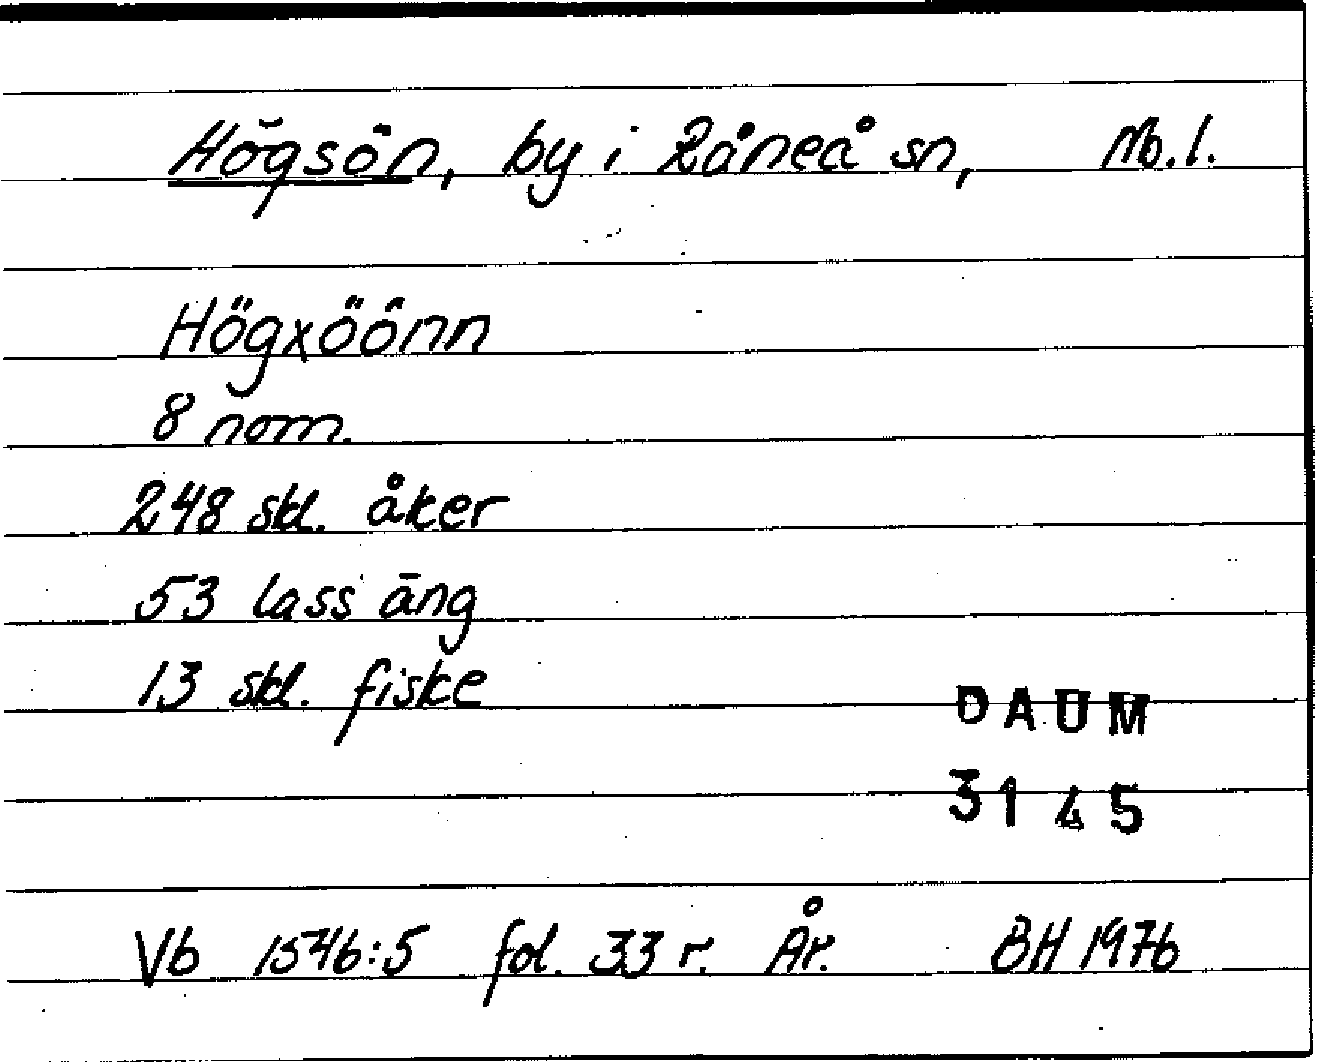 Högsön, by i Råneå sn, Nb.l.
Högxöönn
8 nom.
248 skl. åker
53 lass äng
13 skl. fiske
DAUM
3145
Vb 1546:5 fol. 33 r. Är. BH 1976